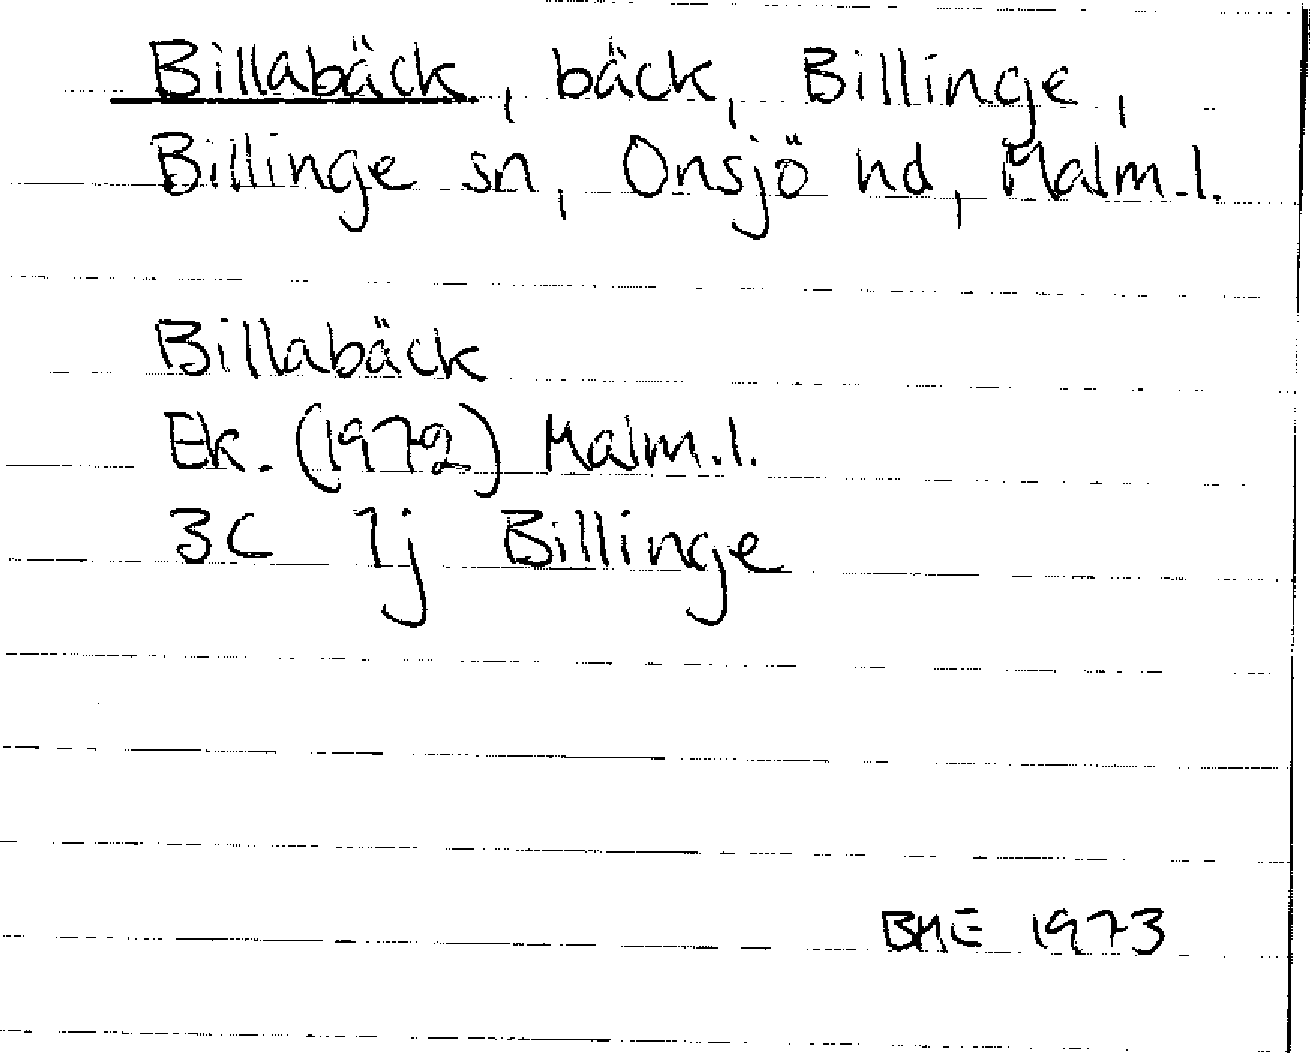 Billabäck, bäck, Billinge,
Billinge sn, Onsjö hd, Malm.l.
Billabäck
Ek. (1972) Malm.l.
3C 7j Billinge
BHE 1973